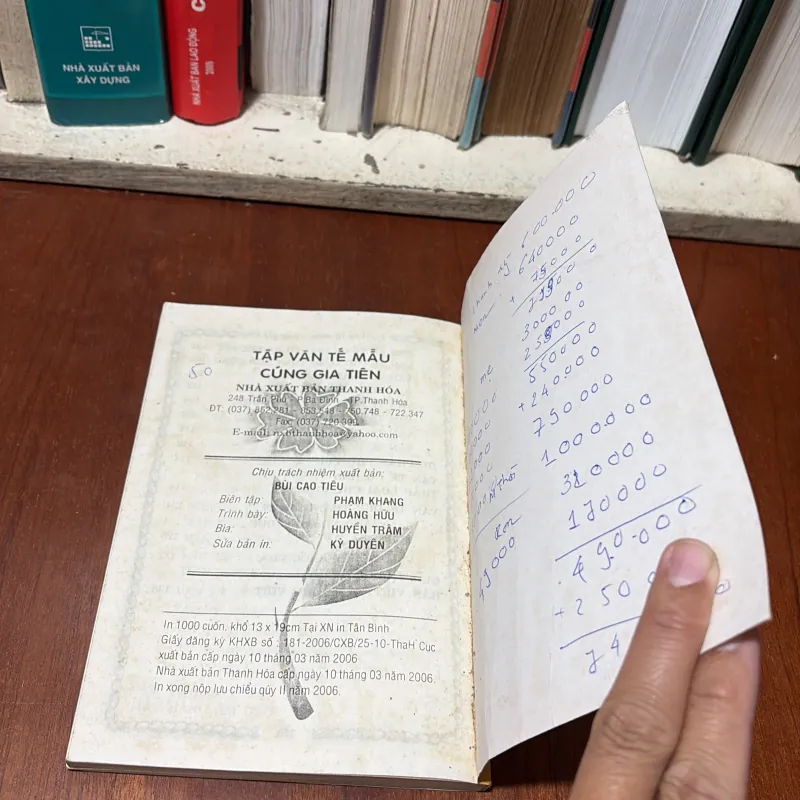 NHÀ XUẤT BẢN
XÂY DỰNG
NHÀ XUẤT BẢN LAO ĐỘNG
2006
C
50
TẬP VĂN TẾ MẪU
CÚNG GIA TIÊN
NHÀ XUẤT BẢN THANH HÓA
248 Trần Phú - P.Ba Đình - TP.Thanh Hóa
ĐT: (037) 852.281 - 853.548 - 750.748 - 722.347
Fax: (037) 720.399
E-mail: nxbthanhhoa@yahoo.com
Chịu trách nhiệm xuất bản:
BÙI CAO TIÊU
Biên tập: PHẠM KHANG
Trình bày: HOÀNG HỮU
Bìa: HUYỀN TRÂM
Sửa bản in: KỲ DUYÊN
In 1000 cuốn. khổ 13 x 19cm Tại XN in Tân Bình
Giấy đăng ký KHXB số : 181-2006/CXB/25-10-ThaH Cục
xuất bản cấp ngày 10 tháng 03 năm 2006
Nhà xuất bản Thanh Hóa cấp ngày 10 tháng 03 năm 2006.
In xong nộp lưu chiểu qúy II năm 2006.
640000
+ 75000
300000
550000
+ 240.000
790000
1000.000
320000
170000
490.000
+ 250
mẹ